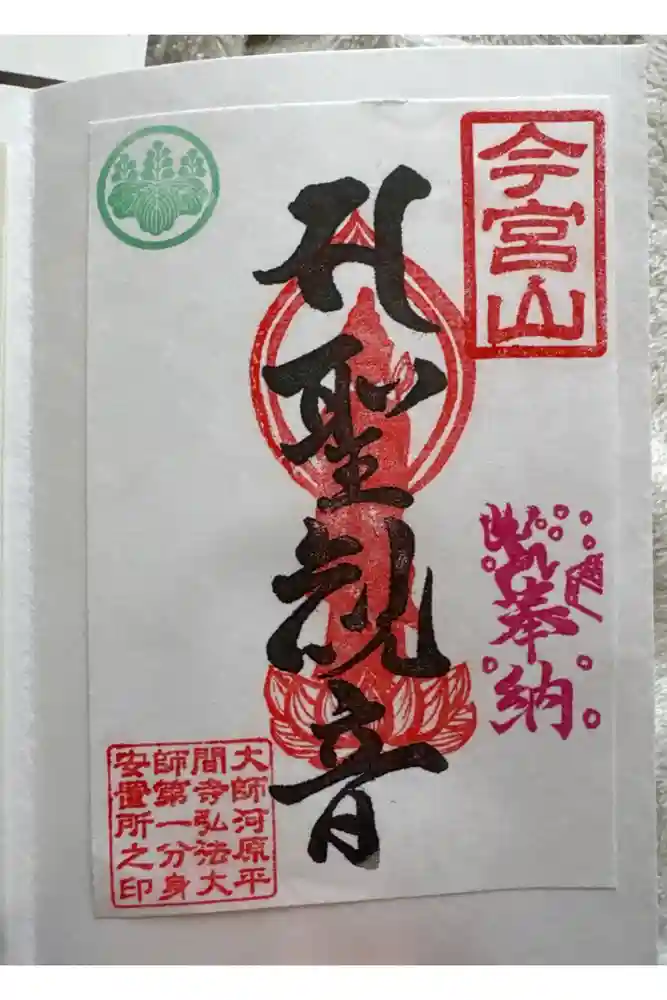 今宮山
奉納
聖観音
大師河原平
間寺弘法大
師第一分身
安置所之印